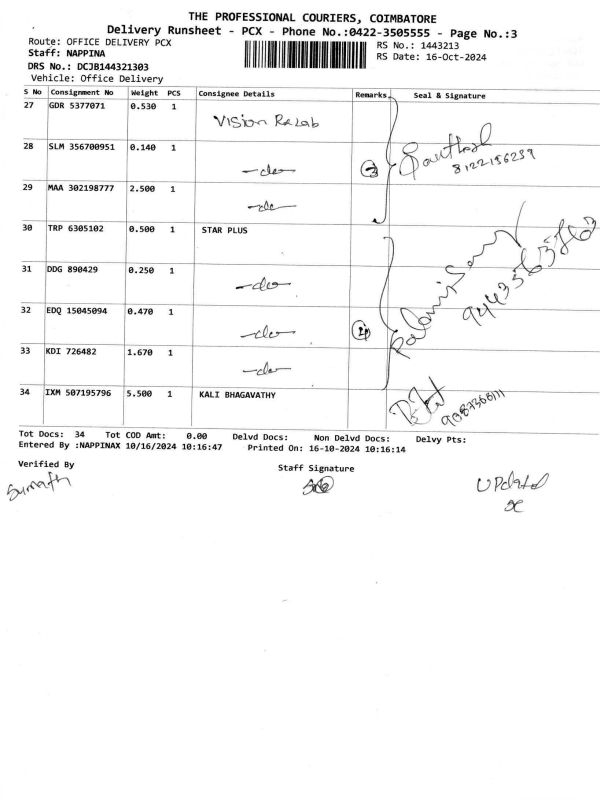 THE PROFESSIONAL COURIERS, COIMBATORE
Delivery Runsheet - PCX - Phone No.:0422-3505555 - Page No.:3
Route: OFFICE DELIVERY PCX
RS No.: 1443213
Staff: NAPPINA
RS Date: 16-Oct-2024
DRS No.: DCJB144321303
Vehicle: Office Delivery
S No Consignment No Weight PCS Consignee Details Remarks Seal & Signature
27 GDR 5377071 0.530 1 Vision
28 SLM 356700951 0.140 1 -do- 3
8122156239
29 MAA 302198777 2.500 1 -do-
30 TRP 6305102 0.500 1 STAR PLUS
31 DDG 890429 0.250 1 -do-
32 EDQ 15045094 0.470 1 -do- 4
33 KDI 726482 1.670 1 -do-
34 IXM 507195796 5.500 1 KALI BHAGAVATHY
Tot Docs: 34 Tot COD Amt: 0.00 Delvd Docs: Non Delvd Docs: Delvy Pts:
Entered By :NAPPINAX 10/16/2024 10:16:47 Printed On: 16-10-2024 10:16:14
Verified By
Staff Signature
UPdated